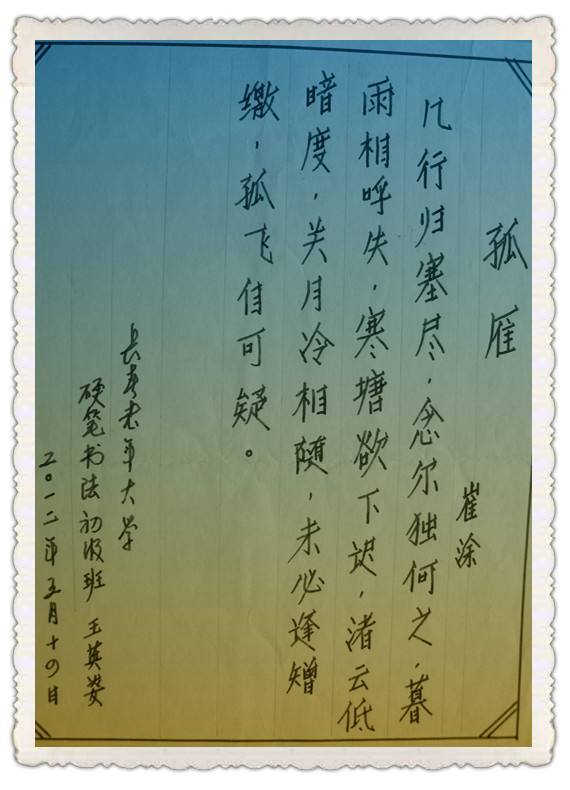 孤雁
崔涂
几行归塞尽，念尔独何之，暮
雨相呼失，寒塘欲下迟，渚云低
暗度，关月冷相随，未必逢矰
缴，孤飞自可疑。
长春老年大学
硬笔书法初级班 王英姿
二0一二年五月十四日